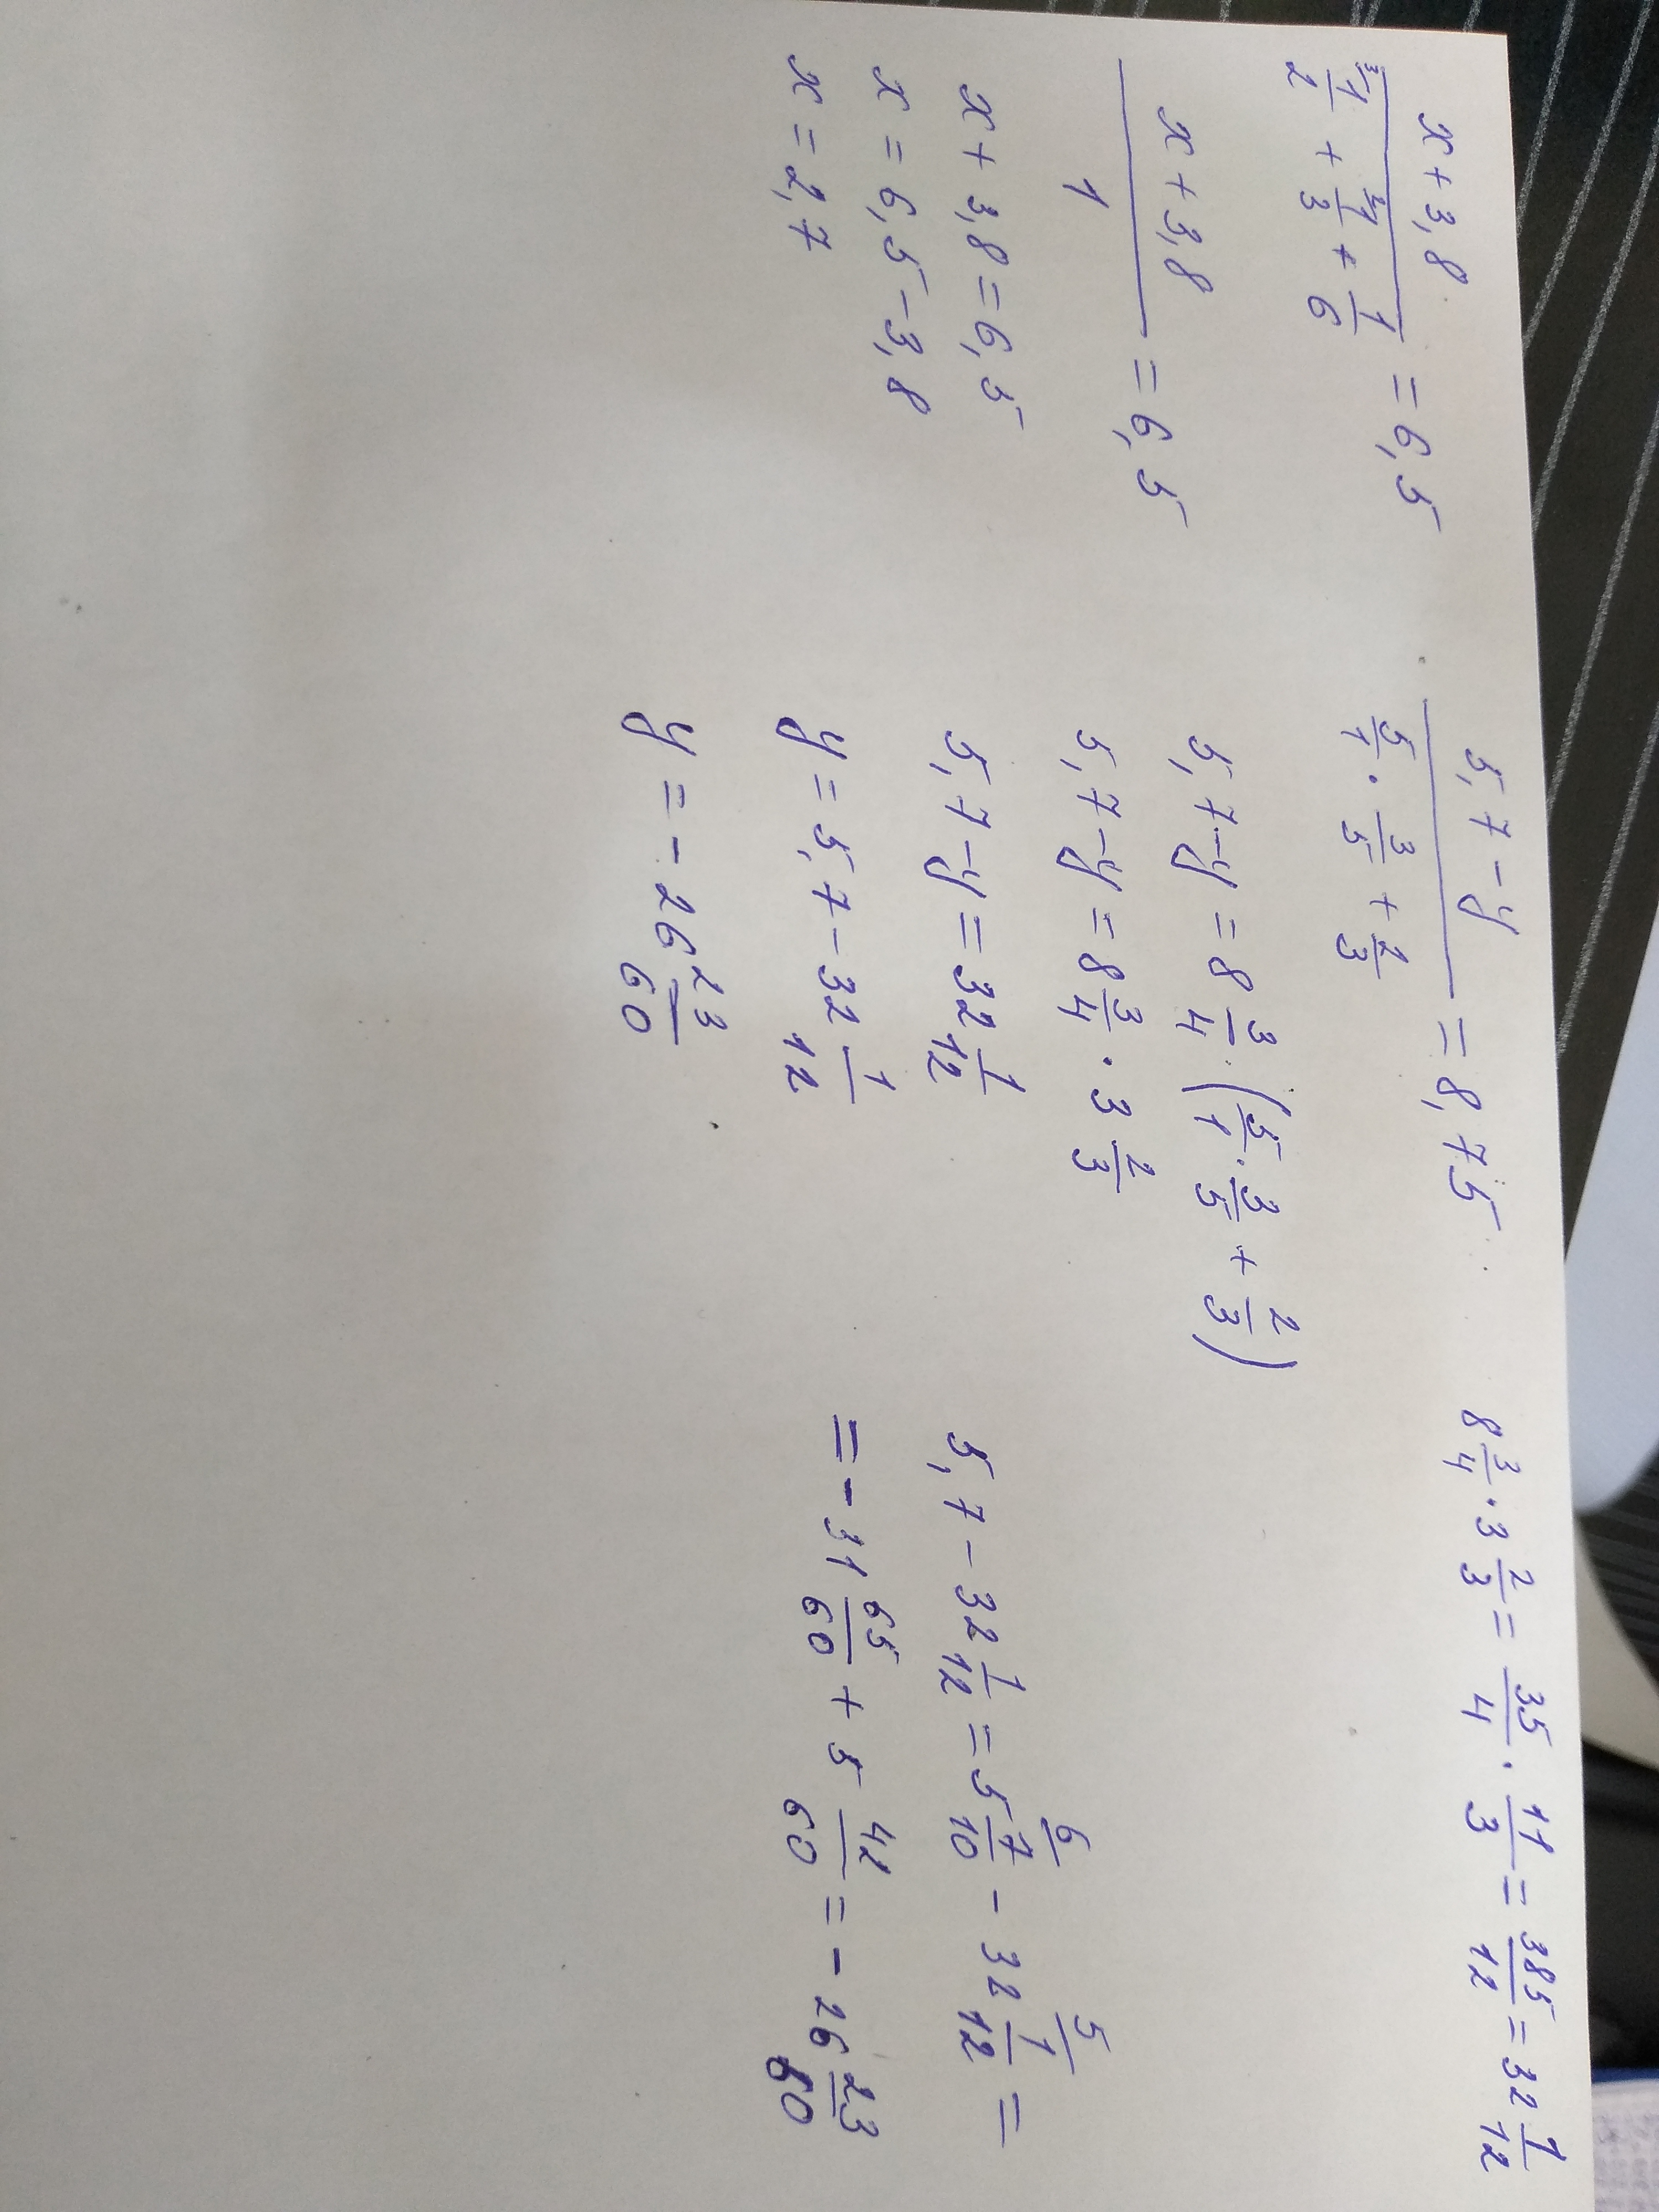 x + 3,8 / (1/2 + 1/3 + 1/6) = 6,5
x + 3,8 / 1 = 6,5
x + 3,8 = 6,5
x = 6,5 - 3,8
x = 2,7
5,7 - y / (5/1 · 3/5 + 2/3) = 8,75
5,7 - y = 8 3/4 (5/1 · 3/5 + 2/3)
5,7 - y = 8 3/4 · 3 2/3
5,7 - y = 32 1/12
y = 5,7 - 32 1/12
y = - 26 23/60
8 3/4 · 3 2/3 = 35/4 · 11/3 = 385/12 = 32 1/12
5,7 - 32 1/12 = 5 7/10 - 32 1/12 =
= - 31 65/60 + 5 42/60 = - 26 23/60